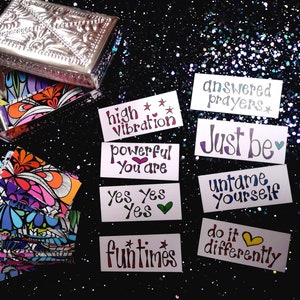 high
vibration
powerful
you are
yes, yes
yes
fun times
answered
prayers
Just be
untame
yourself
do it
differently